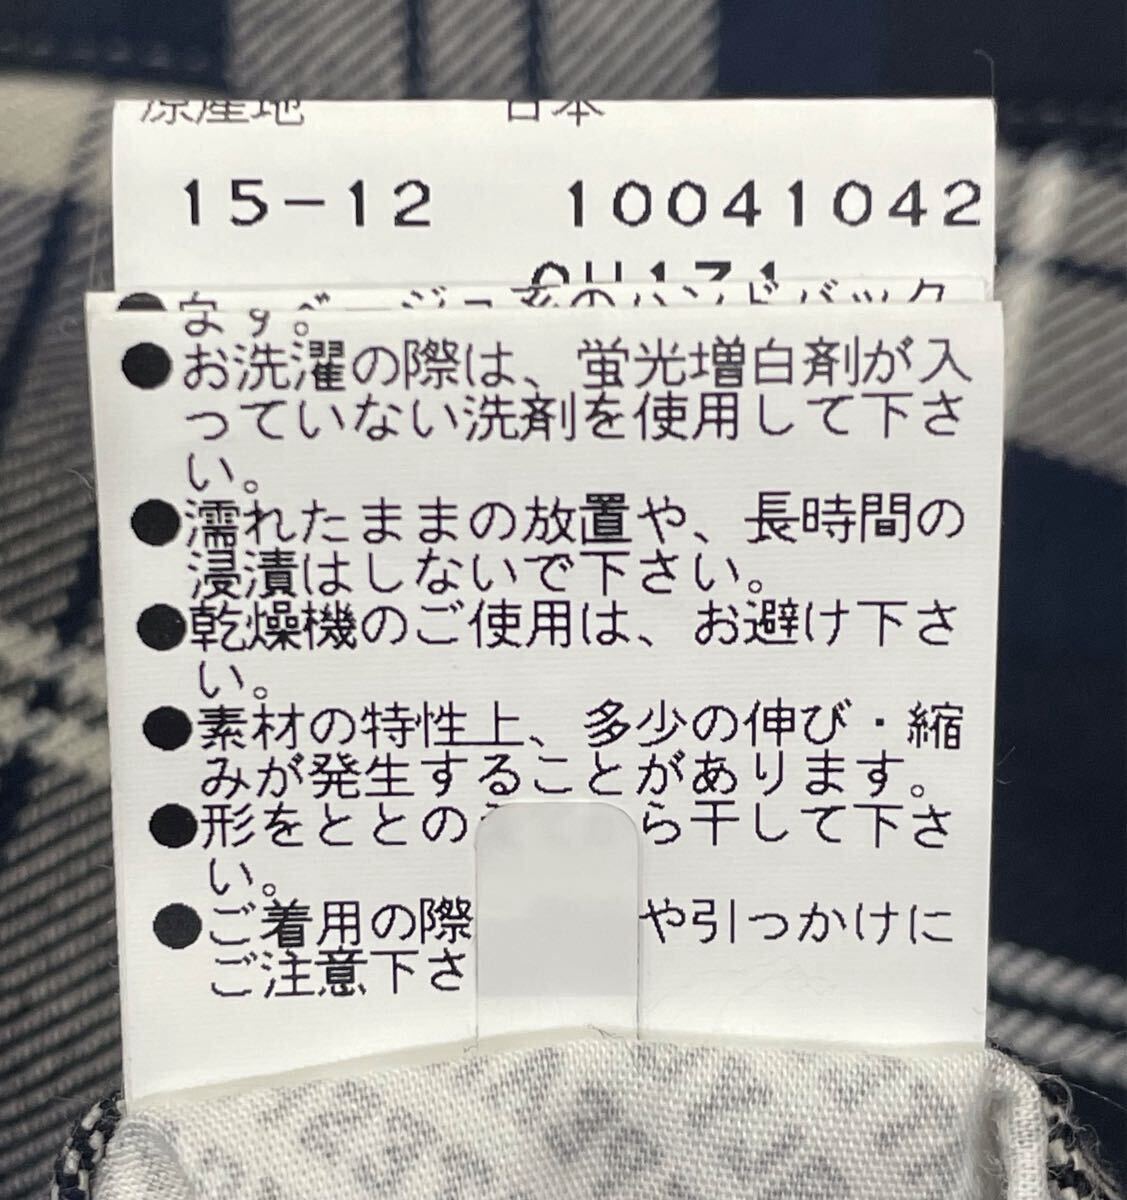 原産地 日本
15-12 10041042
ます。
●お洗濯の際は、蛍光増白剤が入
っていない洗剤を使用して下さ
い。
●濡れたままの放置や、長時間の
浸漬はしないで下さい。
●乾燥機のご使用は、お避け下さ
い。
●素材の特性上、多少の伸び・縮
みが発生することがあります。
●形をととの ら干して下さ
い。
●ご着用の際 や引っかけに
ご注意下さ